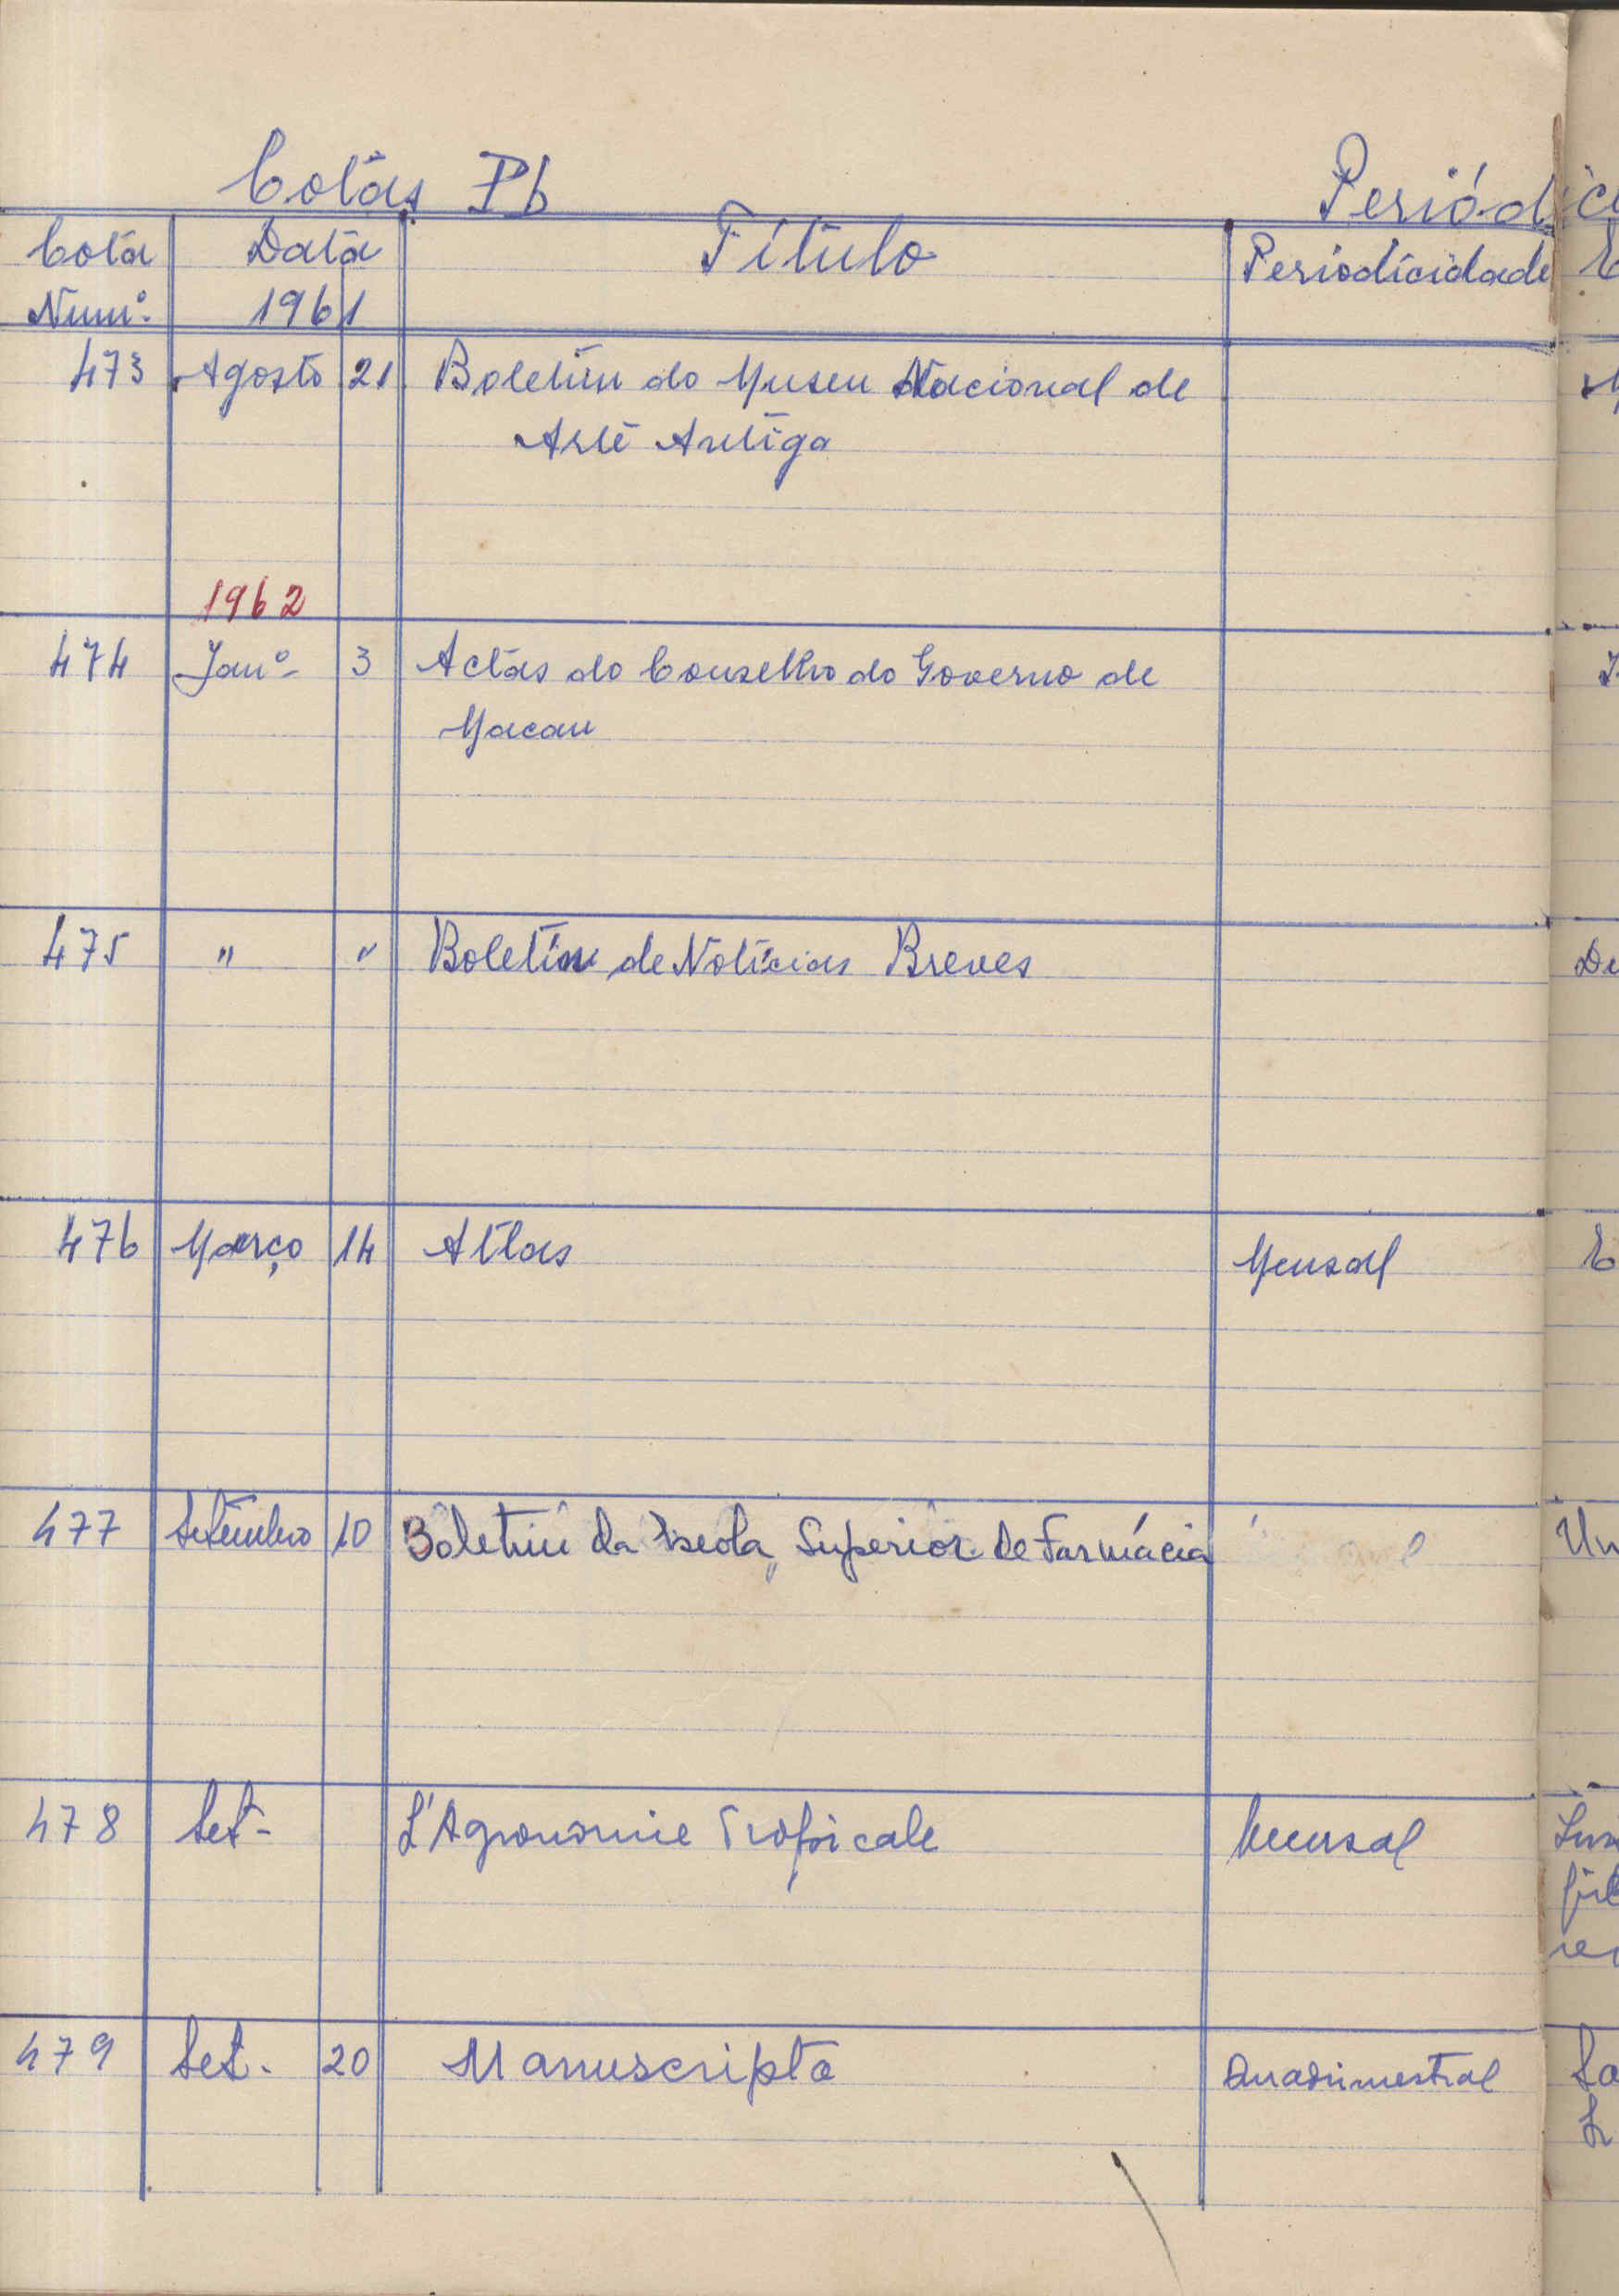 Cotas Pb Periódic
Cota Data Título Periodicidade
Numº 1961
473 Agosto 21 Boletim do Museu Nacional de
Arte Antiga
1962
474 Janº 3 Actas do Conselho do Governo de
Macau
475 " " Boletim de Notícias Breves
De
476 Março 14 Atlas Mensal
477 Setembro 10 Boletim da Escola Superior de Farmácia
Un
478 Set- L'Agronomie Tropicale Mensal
479 Set. 20 Manuscripta Quadrimestral